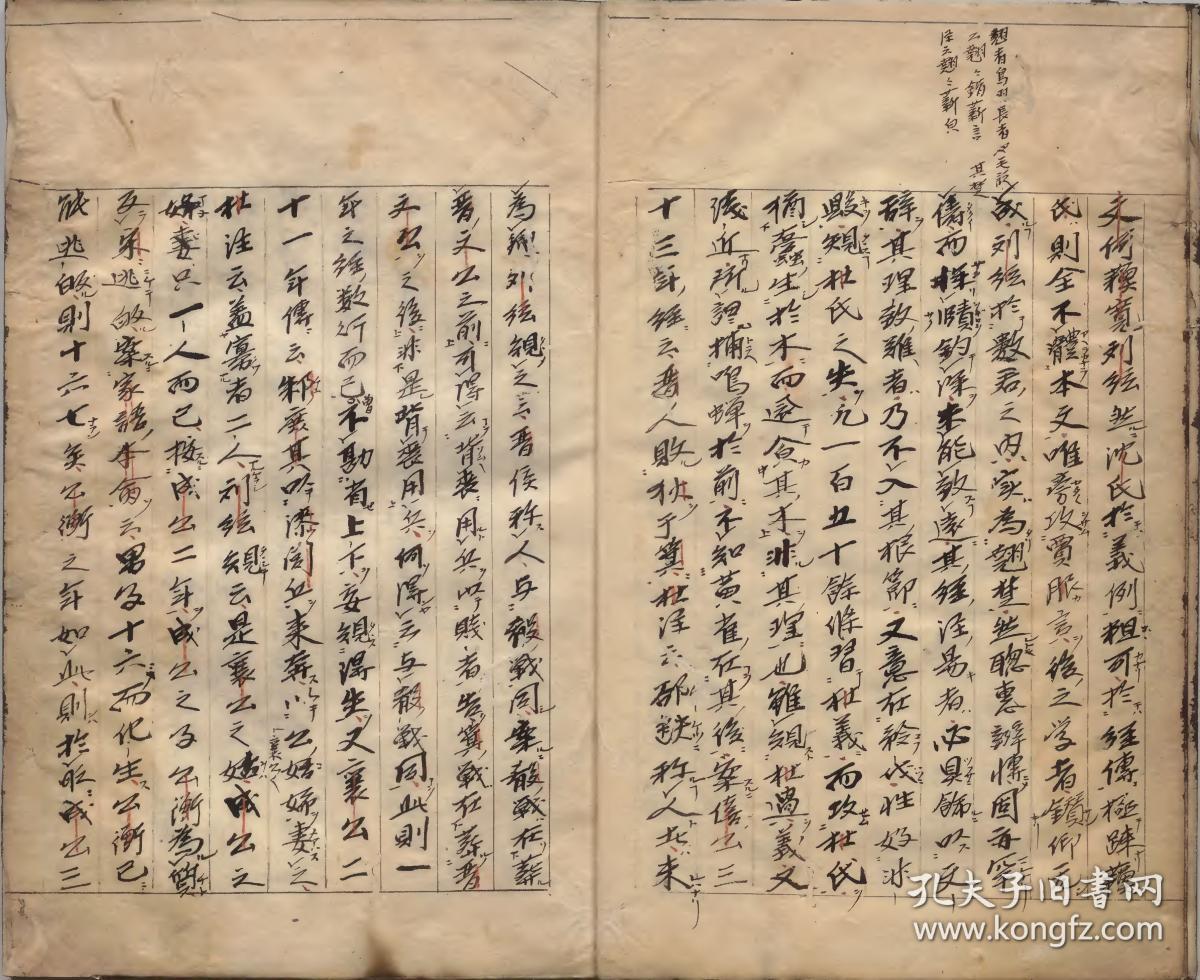 翹者鳥羽長者也毛詩
云翹々錯薪言　其楚
注云翹々薪皃
文何穌寛列炫然沈氏於義例粗可於經傳極踈蘓
氏則全不體本文唯旁攻賈服使後之学者鑽仰无
成列炫於數君之内実為翹楚然聰惠辯慱固亦罕
儔而探賾鈎深未能致遠其經注易者必具餝以文
辞其理致難者乃不入其根節又意在矜伐性好非
毀規杜氏之失凡一百五十餘條習杜義而攻杜氏
猶蠹生於木而還食其木非其理也雖規杜過義又
浅近所謂捕鳴蟬於前不知黄雀在其後案僖公三
十三年經云晋人敗狄于箕杜注云郤缺称人者未
為卿列炫規之云晋侯称人与殽戰同案殽戰在葬
晋文公之前可得云背喪用兵以賎者告箕戰在葬晋
文公之後非是背喪用兵何得云与殽戰同此則一
年之經數行而已曽不勘省上下妄規得失又襄公二
十一年傳云邾庶其以漆閭丘来奔以公姑姊妻之
杜注云盖寡者二人列炫規云是襄公之姑成公之
姊只一人而已按成公二年成公之子公衡為質
及宋逃敀案家語本命云男子十六而化生公衡已
能逃敀則十六七矣公衡之年如此則於時成公三
孔夫子旧书网
www.kongfz.com